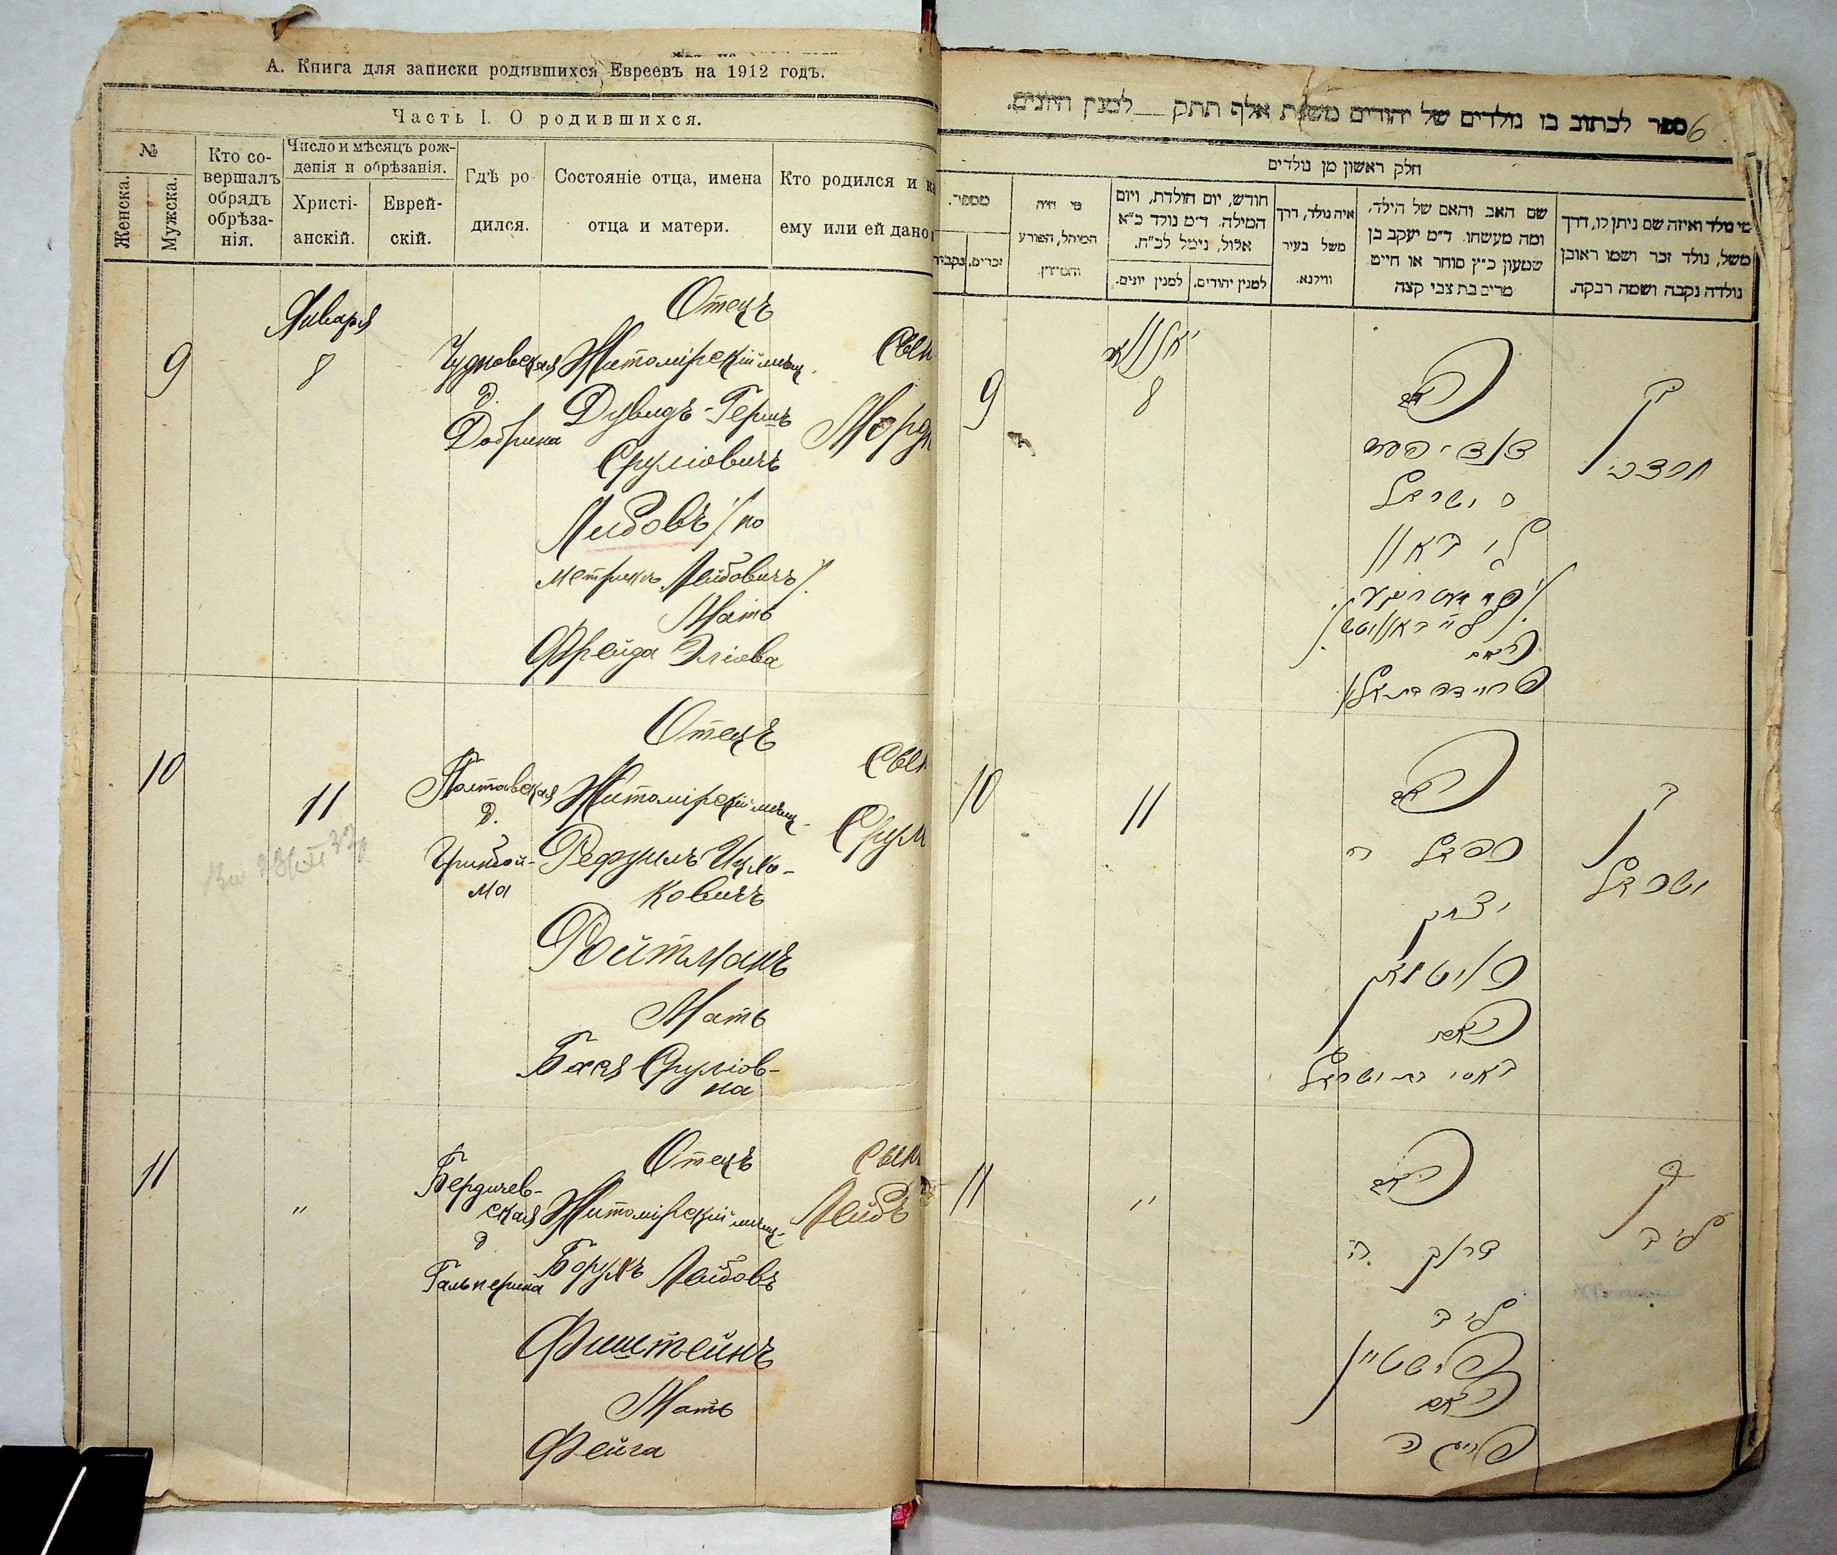 А. Книга для записки родившихся Евреевъ на 1912 годъ.
Часть I. О родившихся.
№
Женска.
Мужска.
Кто со-
вершалъ
обрядъ
обрѣза-
нія.
Число и мѣсяцъ рож-
денія и обрѣзанія.
Христі-
анскій.
Еврей-
скій.
Гдѣ ро
дился.
Состояніе отца, имена
отца и матери.
Кто родился и ка
ему или ей дано
9
Января
8
Чудновская
д.
Добрина
Отецъ
Житомірскій мѣщ.
Дувидъ-Гершъ
Сруліовичъ
Либовъ /по
метрикѣ Лейбовичъ/.
Мать
Фрейда Эліова
Сын
Морд
10
11
Полтавская
д.
Отецъ
Житомірскій мѣщ.
Рефулъ Ицко-
ковичъ
Ройтманъ
Мать
Бася Сруліов-
на
Сын
Срул
11
"
Бердичев-
ская
д
Гальперина
Отецъ
Житомірскій мѣщ.
Борухъ Лейбовъ
Фиштейнъ
Мать
Фейга
Сын
Лейбъ
6
ספר לכתוב בו נולדים של יהודים משנת אלף תתק __ למנין היונים.
חלק ראשון מן נולדים
מספר.
זכרים,
נקבות
מי היה
המוהל, הפורע
והמוצץ.
חודש, יום הולדת, ויום
המילה. ד״מ נולד כ״א
אלול, נימל לכ״ח.
למנין יהודים,
למנין יונים.
איה נולד, דרך
משל בעיר
ווילנא.
שם האב והאם של הילד,
ומה מעשהו. ד״מ יעקב בן
שמעון כ״ץ סוחר או חייט
מרים בת צבי קצה
מי נולד ואיזה שם ניתן לו, דרך
משל, נולד זכר ושמו ראובן
נולדה נקבה ושמה רבקה.
9
יאנואר
8
האב
דוד הירש
ב ישראל
ליבאוו
לייבאוויטש
האם
פריידא בת אלי׳
בן
מרדכי
10
11
האב
רפאל ב
יצחק
רויטמאן
האם
באסי בת ישראל
בן
ישראל
11
"
האב
ברוך ב
ליב
פישטיין
האם
פייגא
בן
ליב